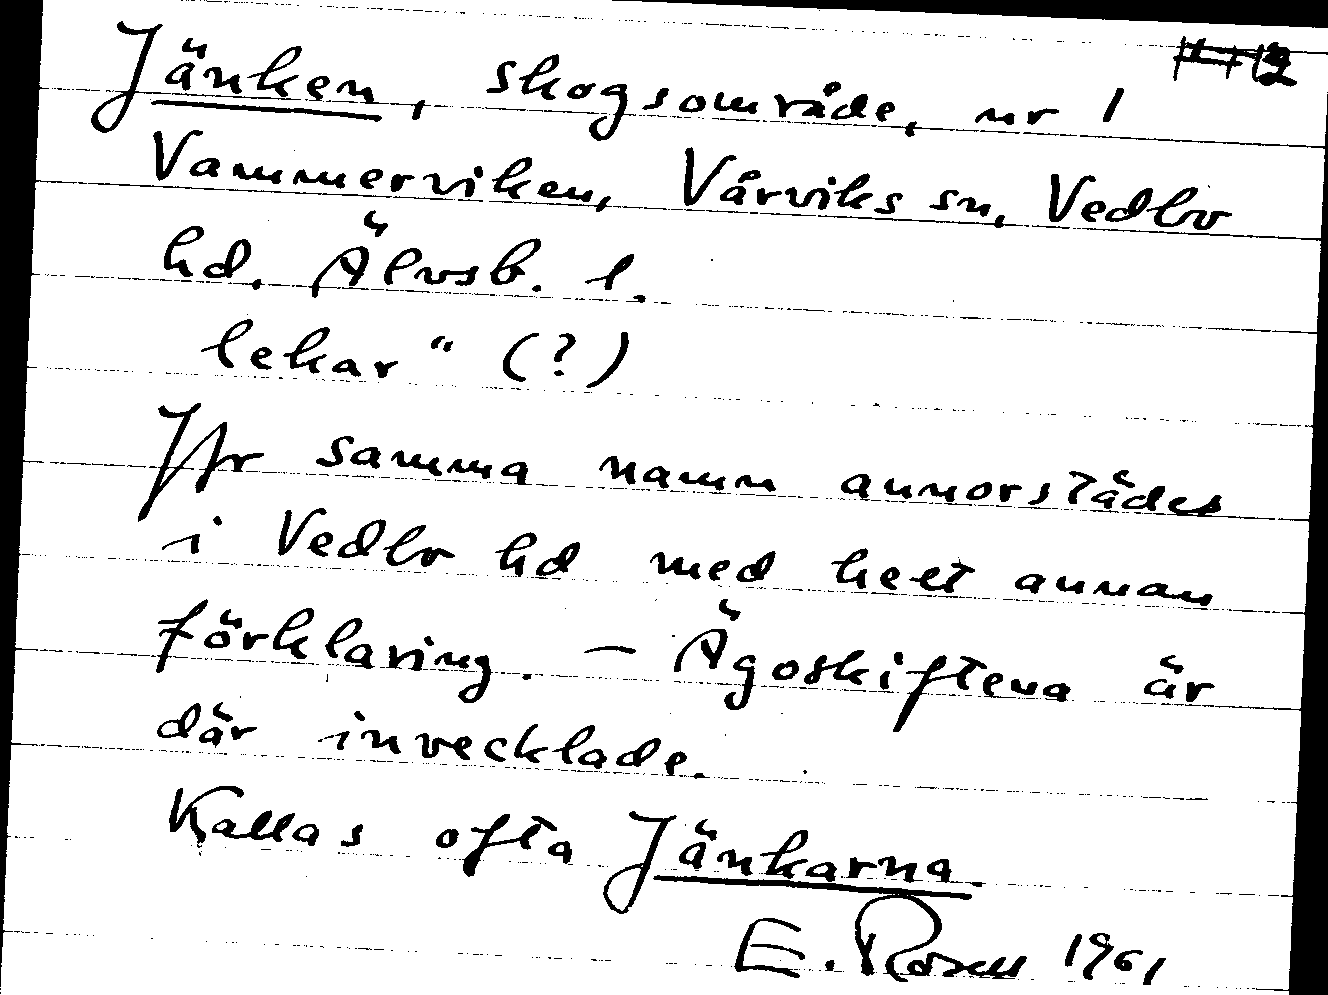 Jänken, skogsområde, nr 1
Vammerviken, Vårviks sn, Vedbo
hd. Älvsb. l.
lekar" (?)
Jfr samma namn annorstädes
i Vedbo hd med helt annan
förklaring. – Ägoskiftena är
där invecklade.
Kallas ofta Jänkarna.
E. Rosell 1961